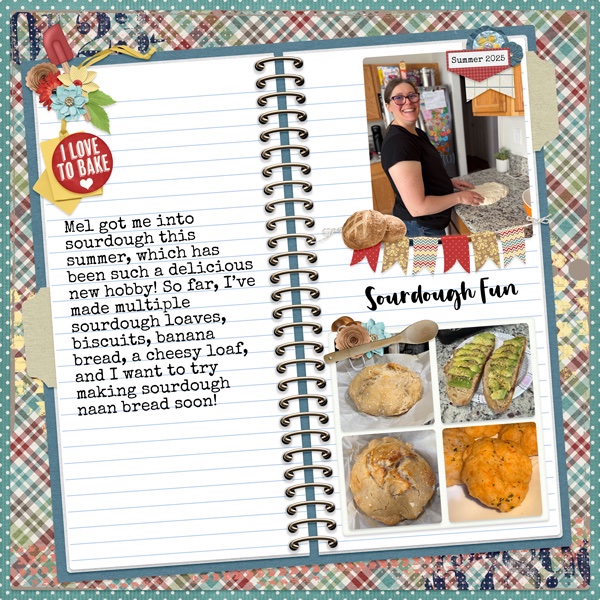 I LOVE
TO BAKE
Mel got me into
sourdough this
summer, which has
been such a delicious
new hobby! So far, I've
made multiple
sourdough loaves,
biscuits, banana
bread, a cheesy loaf,
and I want to try
making sourdough
naan bread soon!
Summer 2025
Sourdough Fun